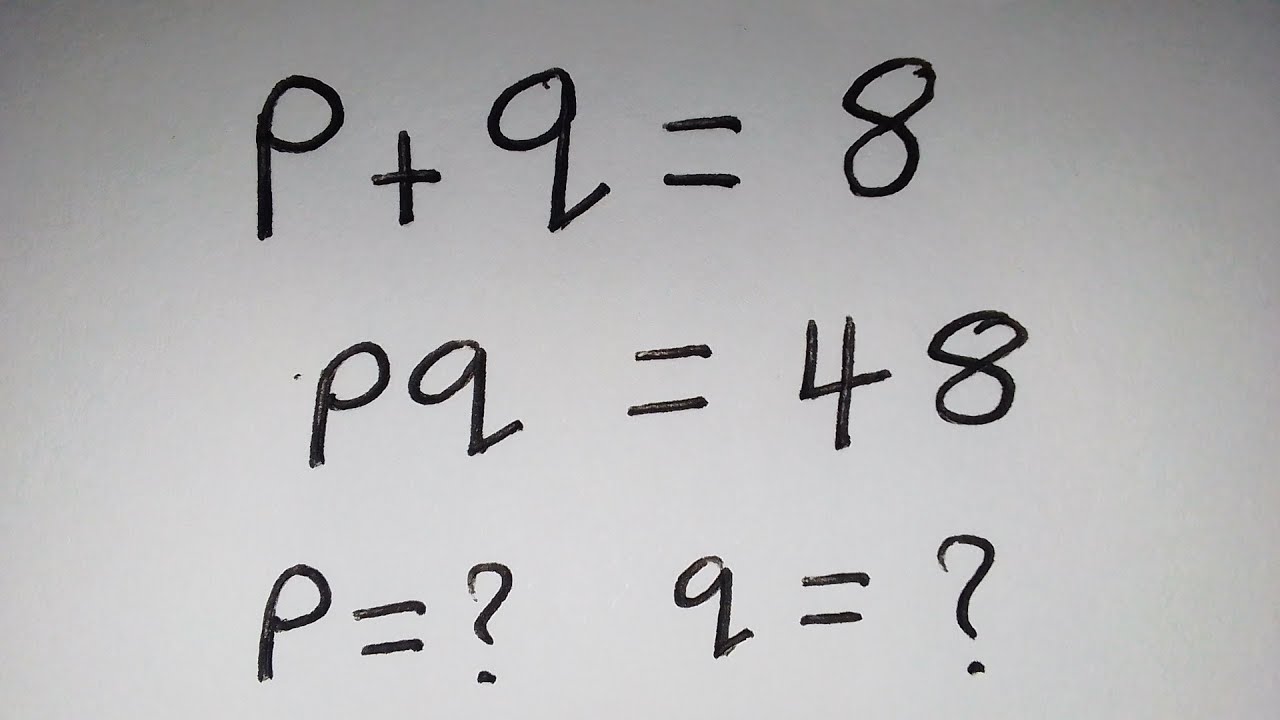 p + q = 8
pq = 48
p = ? q = ?